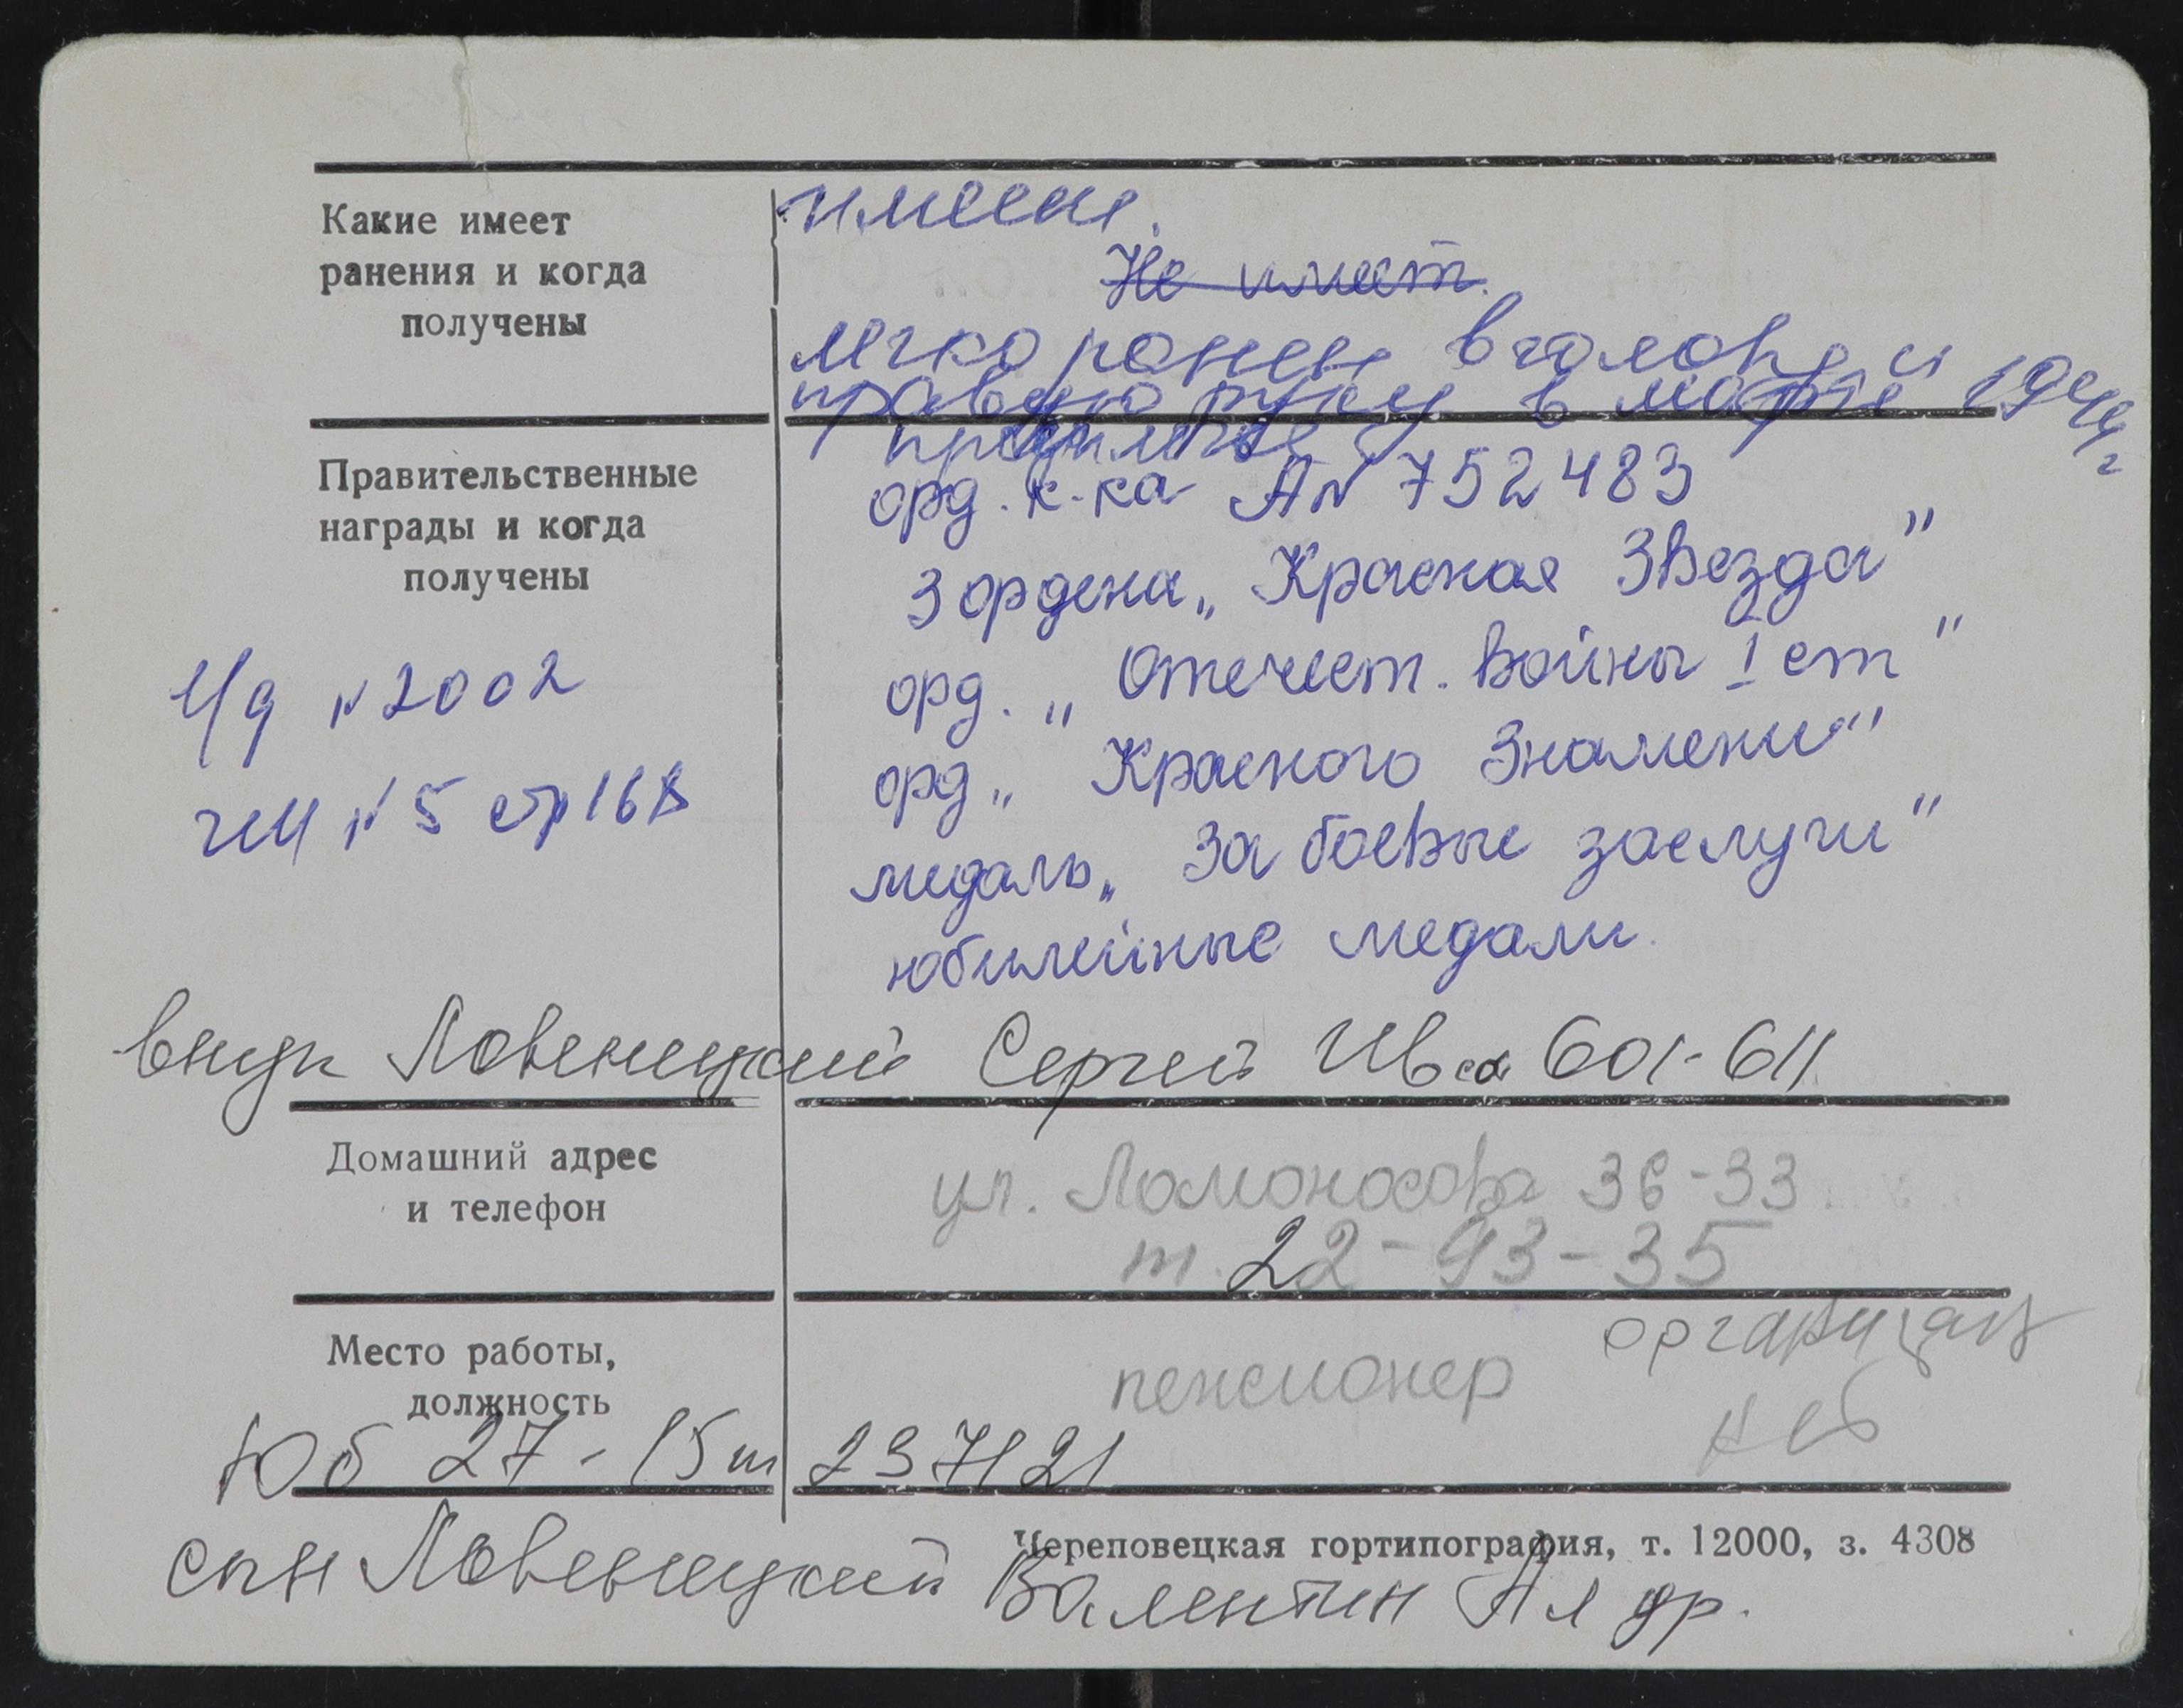 Какие имеет
ранения и когда
получены
имеет.
Не имеет.
легко ранен в голову и
правую руку в марте 1944 г
Правительственные
награды и когда
получены
орд. к-ка А № 752483
3 ордена „Красная Звезда"
орд. „Отечест. Войны I ст"
орд „Красного Знамени"
медаль „За боевые заслуги"
юбилейные медали.
У/д №2002
№5 стр 168
внук Ловеницкий Сергей Ив 601-611
Домашний адрес
и телефон
ул. Ломоносова 36-33
т. 22-93-35
Место работы,
должность
пенсионер
Юб 27-15 т 237121
Череповецкая гортипография, т. 12000, з. 4308
сын Ловеницкий Валентин Ал др.